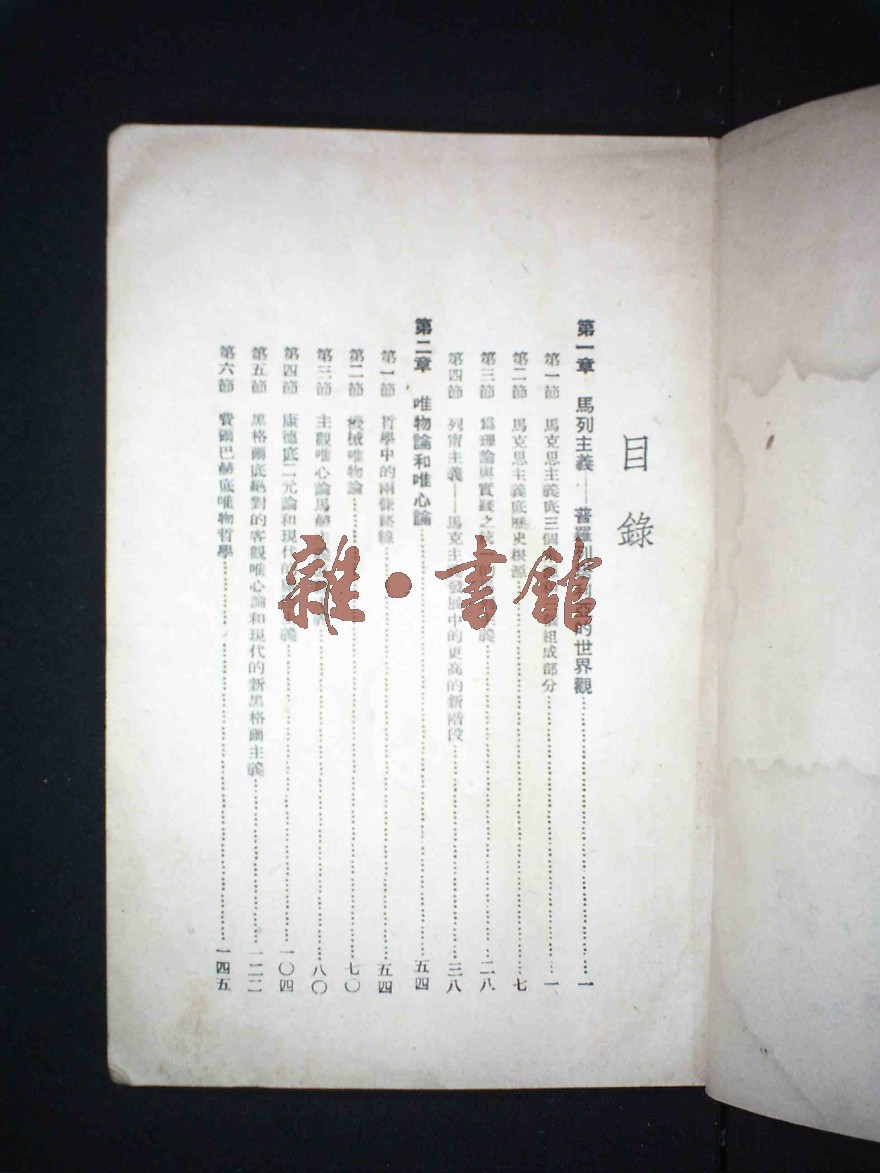 目錄
第一章 馬列主義——普羅列塔利亞的世界觀……一
第一節 馬克思主義底三個 組成部分……一
第二節 馬克思主義底歷史根源……七
第三節 爲理論與實踐之統一 義……二八
第四節 列甯主義——馬克主 發展中的更高的新階段……三八
第二章 唯物論和唯心論……五四
第一節 哲學中的兩條路線……五四
第二節 機械唯物論……七〇
第三節 主觀唯心論馬赫主義 義……八〇
第四節 康德底二元論和現代的 義……一〇四
第五節 黑格爾底絕對的客觀唯心論和現代的新黑格爾主義……一二二
第六節 費爾巴赫底唯物哲學……一四五
雜·書館